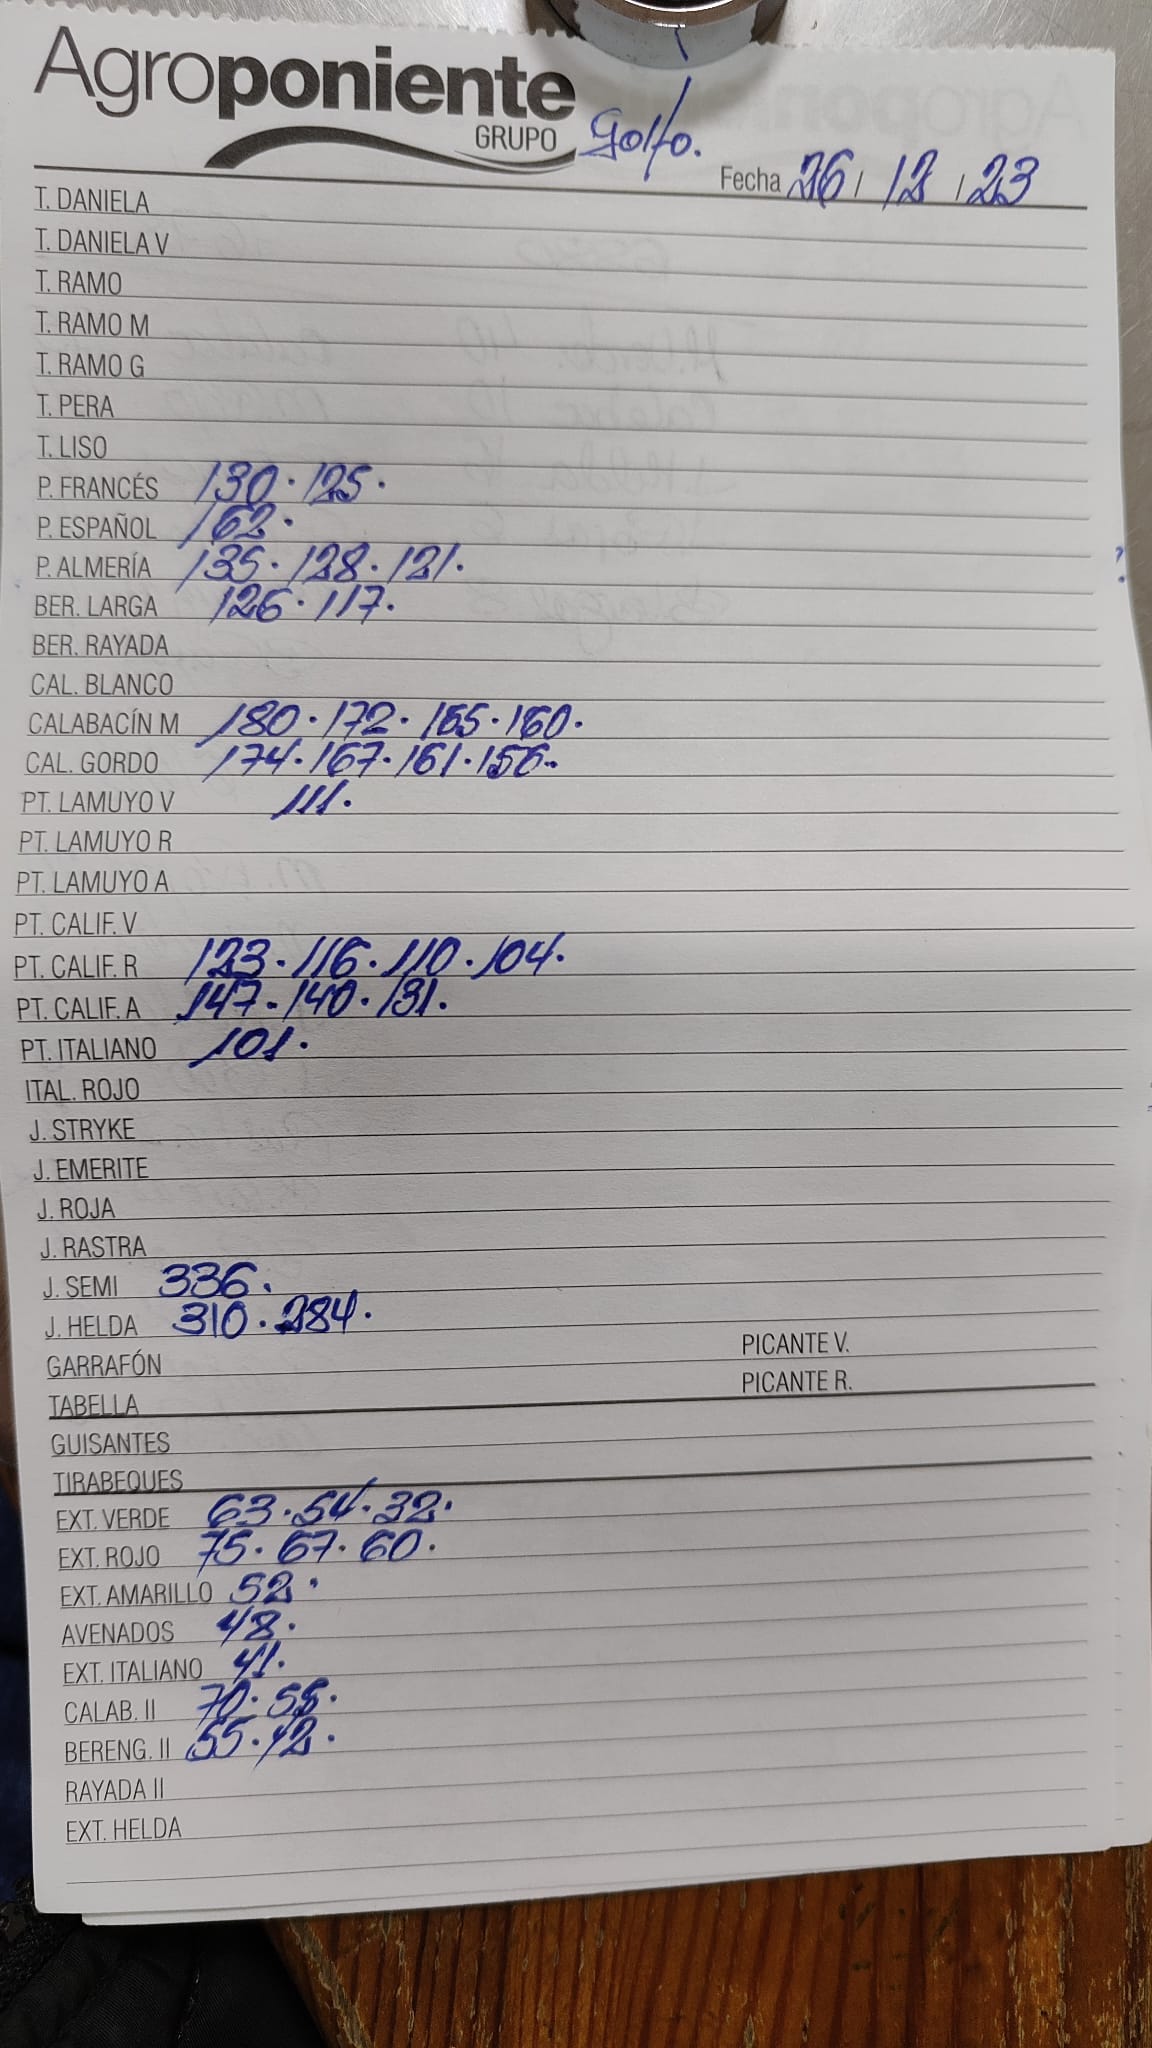 Agroponiente
GRUPO
Golfo.
Fecha 26 / 12 / 23
T. DANIELA
T. DANIELA V
T. RAMO
T. RAMO M
T. RAMO G
T. PERA
T. LISO
P. FRANCÉS 130 · 125 ·
P. ESPAÑOL 162 ·
P. ALMERÍA 135 · 128 · 121 ·
BER. LARGA 126 · 117 ·
BER. RAYADA
CAL. BLANCO
CALABACÍN M 180 · 172 · 165 · 160 ·
CAL. GORDO 174 · 167 · 161 · 156 ·
PT. LAMUYO V 111 ·
PT. LAMUYO R
PT. LAMUYO A
PT. CALIF. V
PT. CALIF. R 123 · 116 · 110 · 104 ·
PT. CALIF. A 147 · 140 · 131 ·
PT. ITALIANO 101 ·
ITAL. ROJO
J. STRYKE
J. EMERITE
J. ROJA
J. RASTRA
J. SEMI 336 ·
J. HELDA 310 · 284 ·
GARRAFÓN PICANTE V.
TABELLA PICANTE R.
GUISANTES
TIRABEQUES
EXT. VERDE 63 · 54 · 32 ·
EXT. ROJO 75 · 67 · 60 ·
EXT. AMARILLO 52 ·
AVENADOS 48 ·
EXT. ITALIANO 41 ·
CALAB. II 70 · 55 ·
BERENG. II 55 · 42 ·
RAYADA II
EXT. HELDA